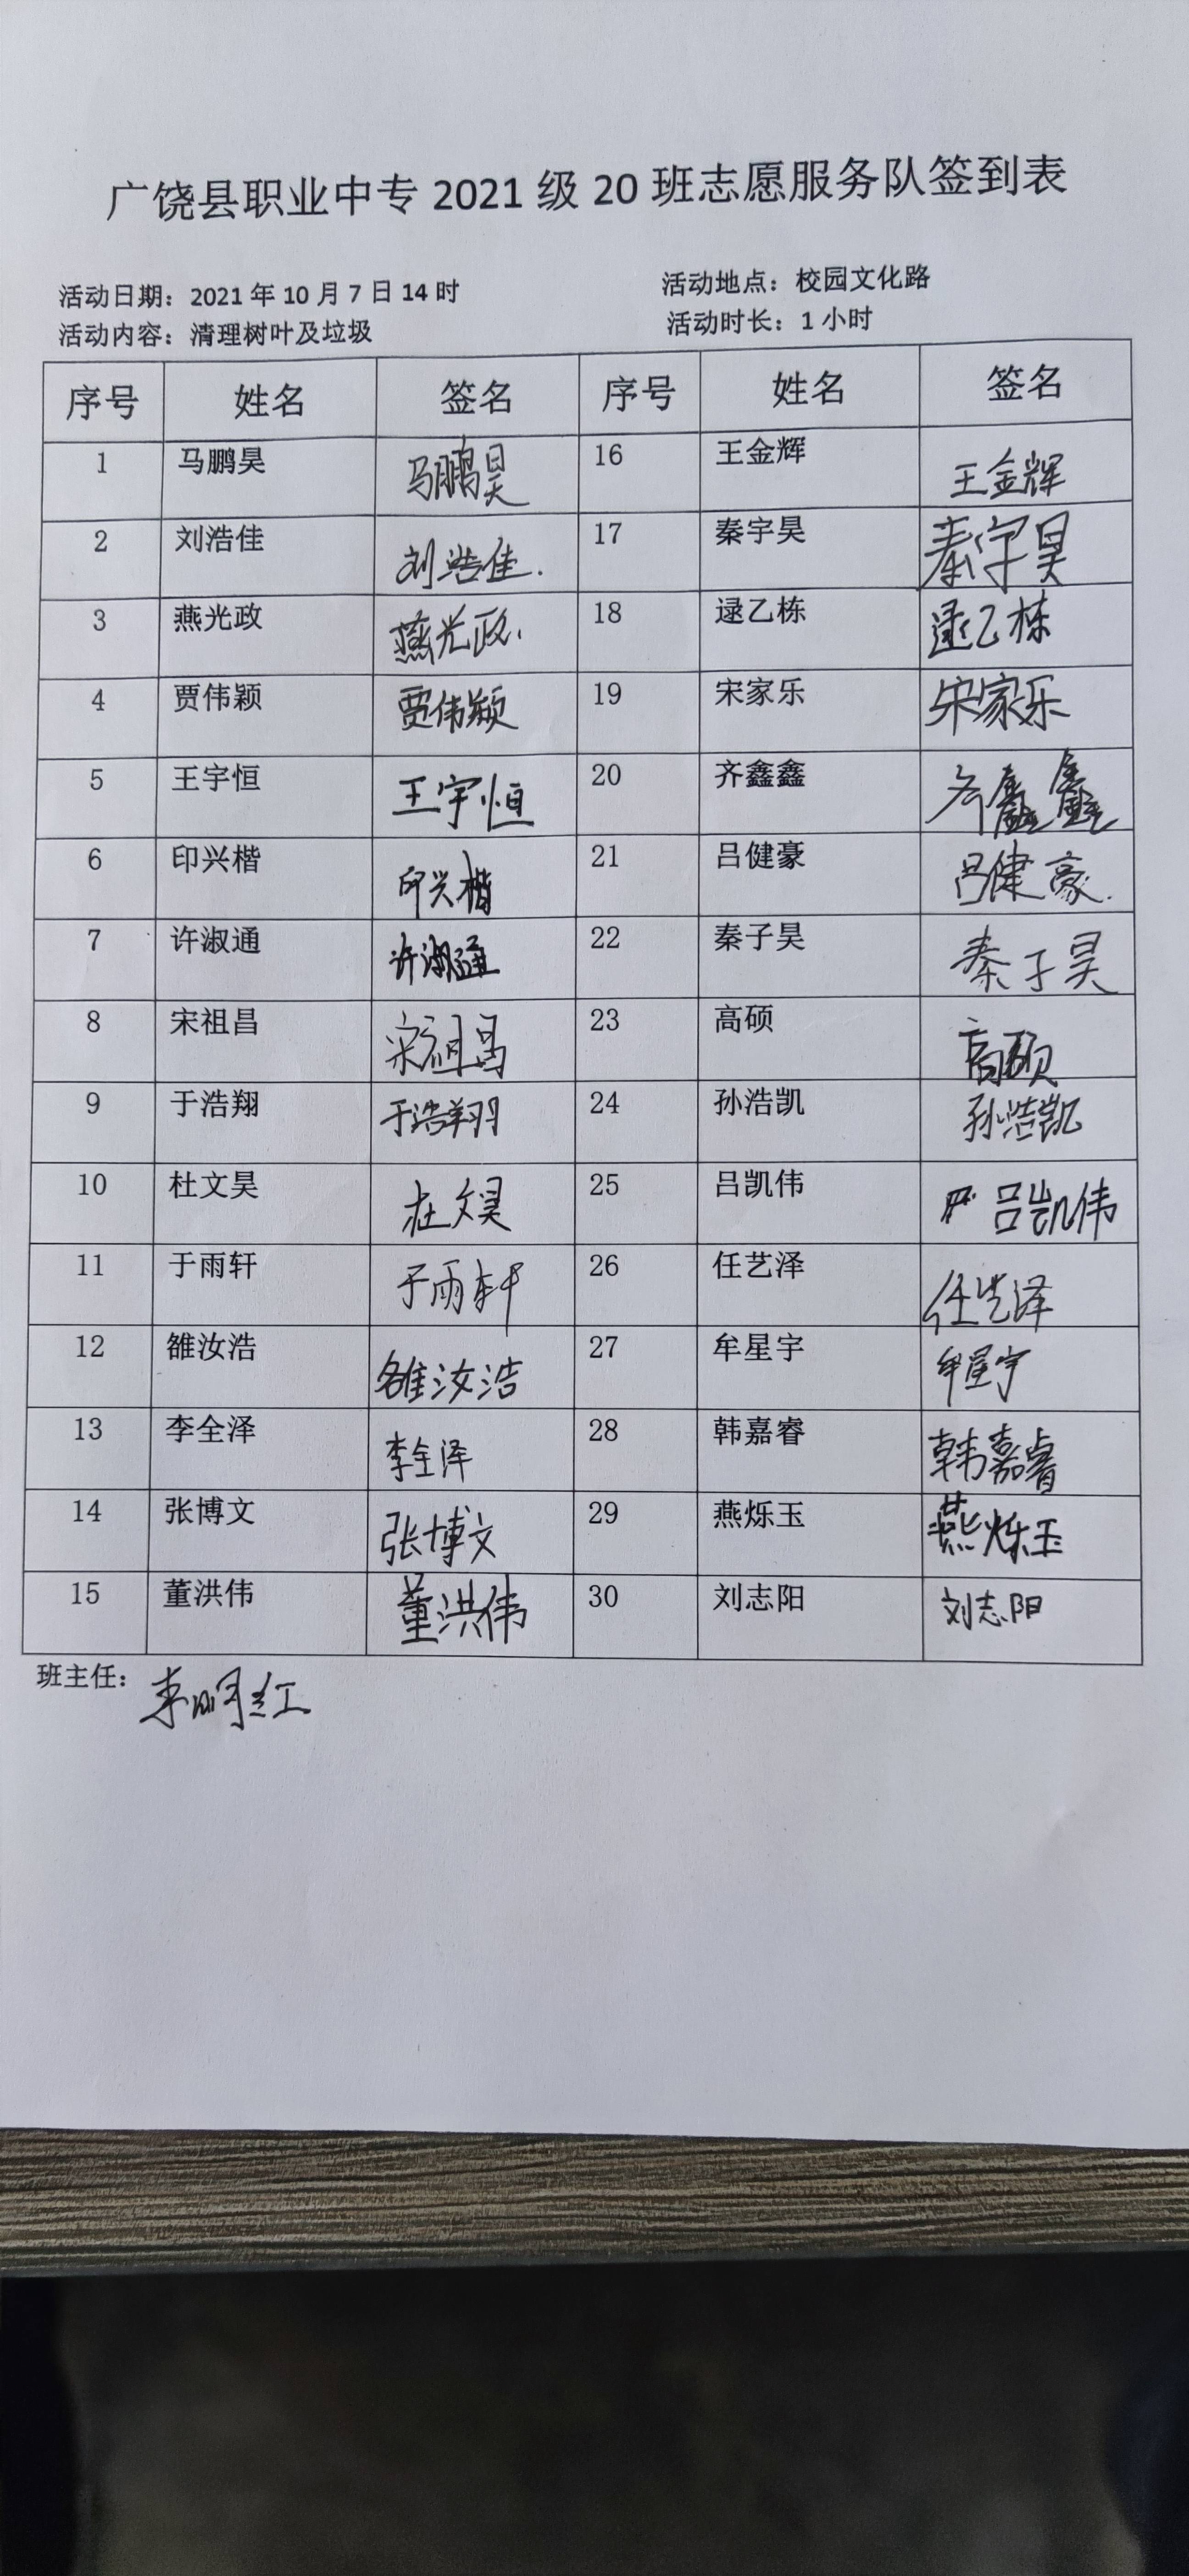 广饶县职业中专 2021 级 20 班志愿服务队签到表
活动日期：2021 年 10 月 7 日 14 时 活动地点：校园文化路
活动内容：清理树叶及垃圾 活动时长：1 小时
序号 姓名 签名 序号 姓名 签名
1 马鹏昊 马鹏昊 16 王金辉 王金辉
2 刘浩佳 刘浩佳. 17 秦宇昊 秦宇昊
3 燕光政 燕光政. 18 逯乙栋 逯乙栋
4 贾伟颖 贾伟颖 19 宋家乐 宋家乐
5 王宇恒 王宇恒 20 齐鑫鑫 齐鑫鑫
6 印兴楷 印兴楷 21 吕健豪 吕健豪.
7 许淑通 许淑通 22 秦子昊 秦子昊
8 宋祖昌 宋祖昌 23 高硕 高硕
9 于浩翔 于浩翔 24 孙浩凯 孙浩凯
10 杜文昊 杜文昊 25 吕凯伟 吕凯伟
11 于雨轩 于雨轩 26 任艺泽 任艺泽
12 雒汝浩 雒汝浩 27 牟星宇 牟星宇
13 李全泽 李全泽 28 韩嘉睿 韩嘉睿
14 张博文 张博文 29 燕烁玉 燕烁玉
15 董洪伟 董洪伟 30 刘志阳 刘志阳
班主任：李明红